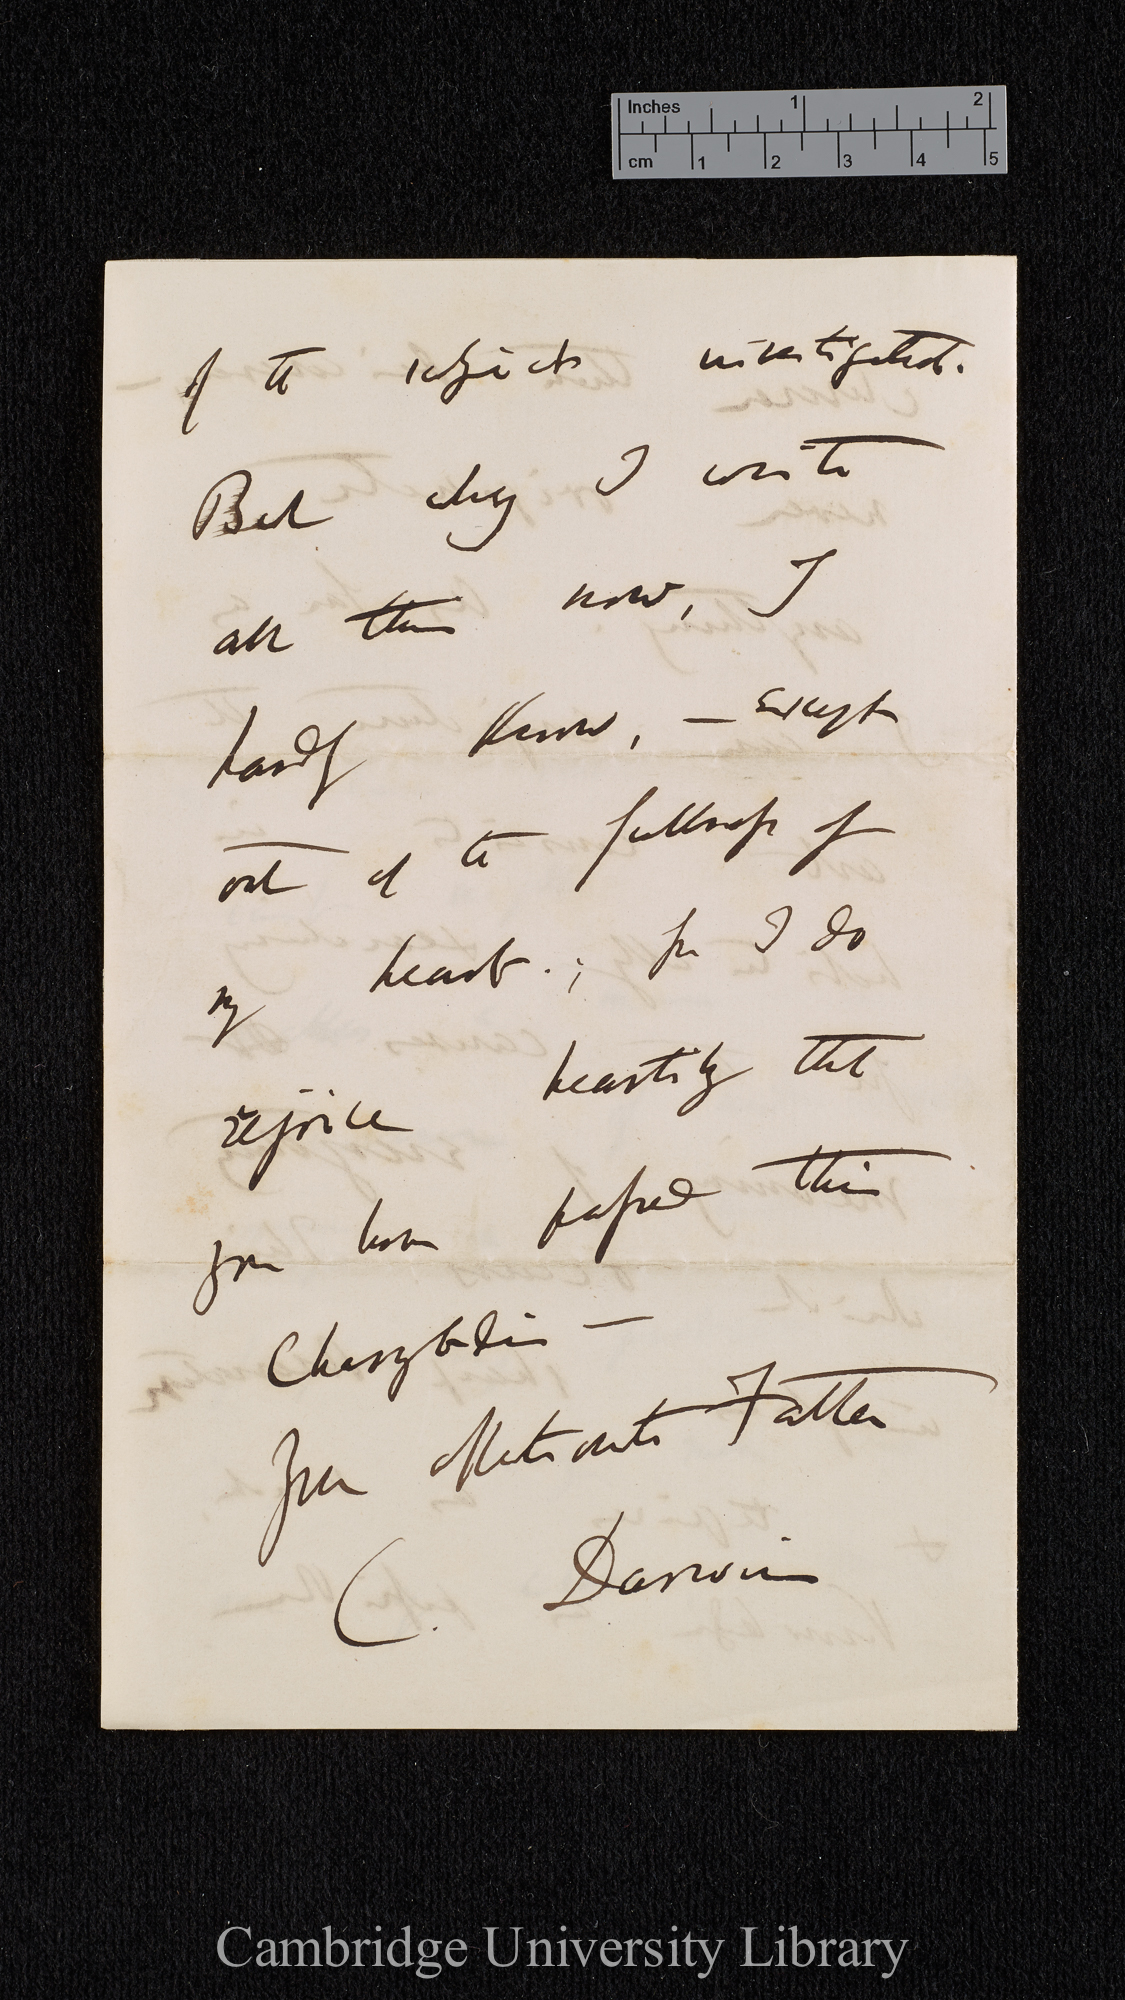 Inches 1 2
cm 1 2 3 4 5
of the subjects investigated.
But why I write
all this now, I
hardly know, — except
out of the fullness of
my heart.; for I do
rejoice heartily that
you have passed this
Charybdis —
Your affectionate Father
C. Darwin
Cambridge University Library